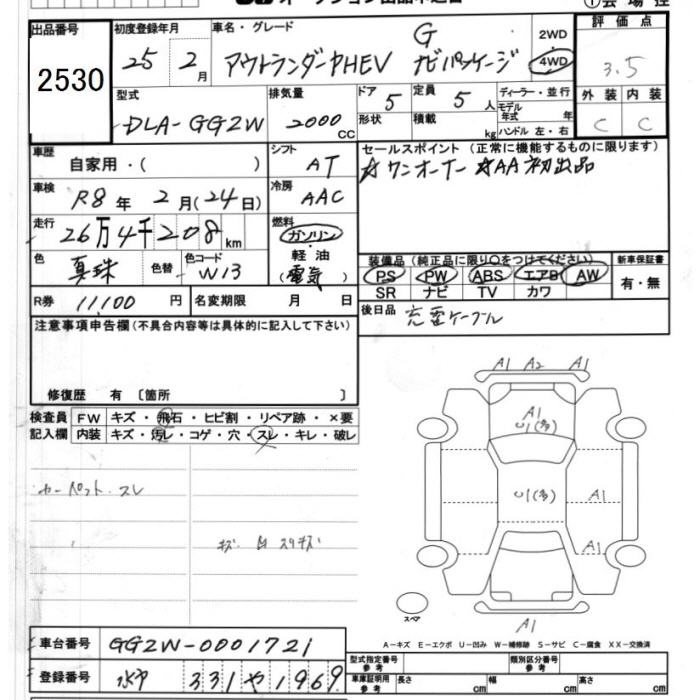 出品番号
2530
初度登録年月
25 2月
車名・グレード
アウトランダーPHEV
G
ナビパッケージ
2WD
4WD
評価点
3.5
外装 内装
C C
型式
DLA-GG2W
排気量
2000 CC
ドア 5
形状
定員 5人
積載 kg
ディーラー・並行
モデル年式 年
ハンドル 左・右
車歴
自家用・( )
シフト
AT
車検
R8年 2月(24日)
冷房
AAC
走行
26万4千208 km
燃料
ガソリン
軽油
(電気)
色
真珠
色替
色コード
W13
R券 11,100 円
名変期限 月 日
セールスポイント(正常に機能するものに限ります)
☆ワンオーナー ☆AA初出品
装備品(純正品に限り〇をつけてください)
PS PW ABS エアB AW
SR ナビ TV カワ
新車保証書
有・無
後日品 充電ケーブル
注意事項申告欄(不具合内容等は具体的に記入して下さい)
修復歴 有〔箇所 〕
検査員記入欄
FW キズ・飛石・ヒビ割・リペア跡・×要
内装 キズ・汚レ・コゲ・穴・スレ・キレ・破レ
カーペット・スレ
A1 A2 A1
A1
U1(多)
U1(多)
A1
A1
A1
スペア
A-キズ E-エクボ U-凹み W-補修跡 S-サビ C-腐食 XX-交換済
車台番号 GG2W-0001721
登録番号 水戸 331 や 1969
型式指定番号 参考
類別区分番号 参考
車庫証明用 参考
長さ cm
幅 cm
高さ cm